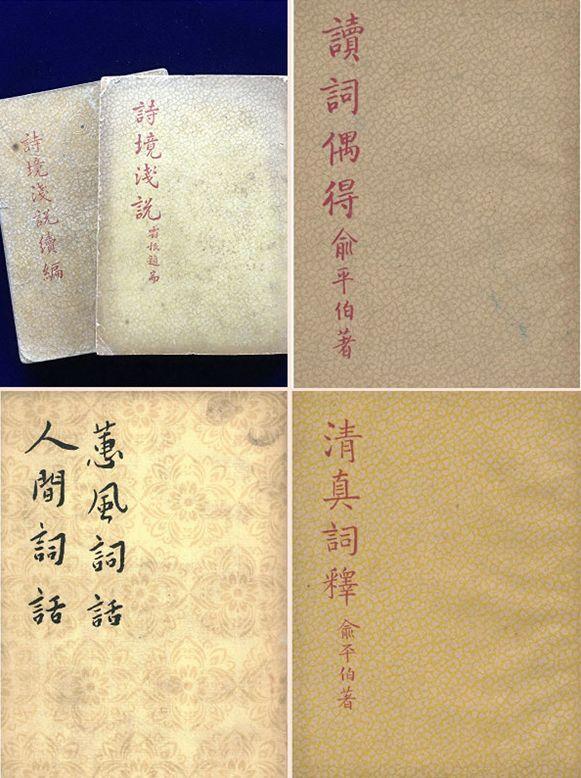 詩境淺說續編
詩境淺說
讀詞偶得
俞平伯著
蕙風詞話
人間詞話
清真詞釋
俞平伯著